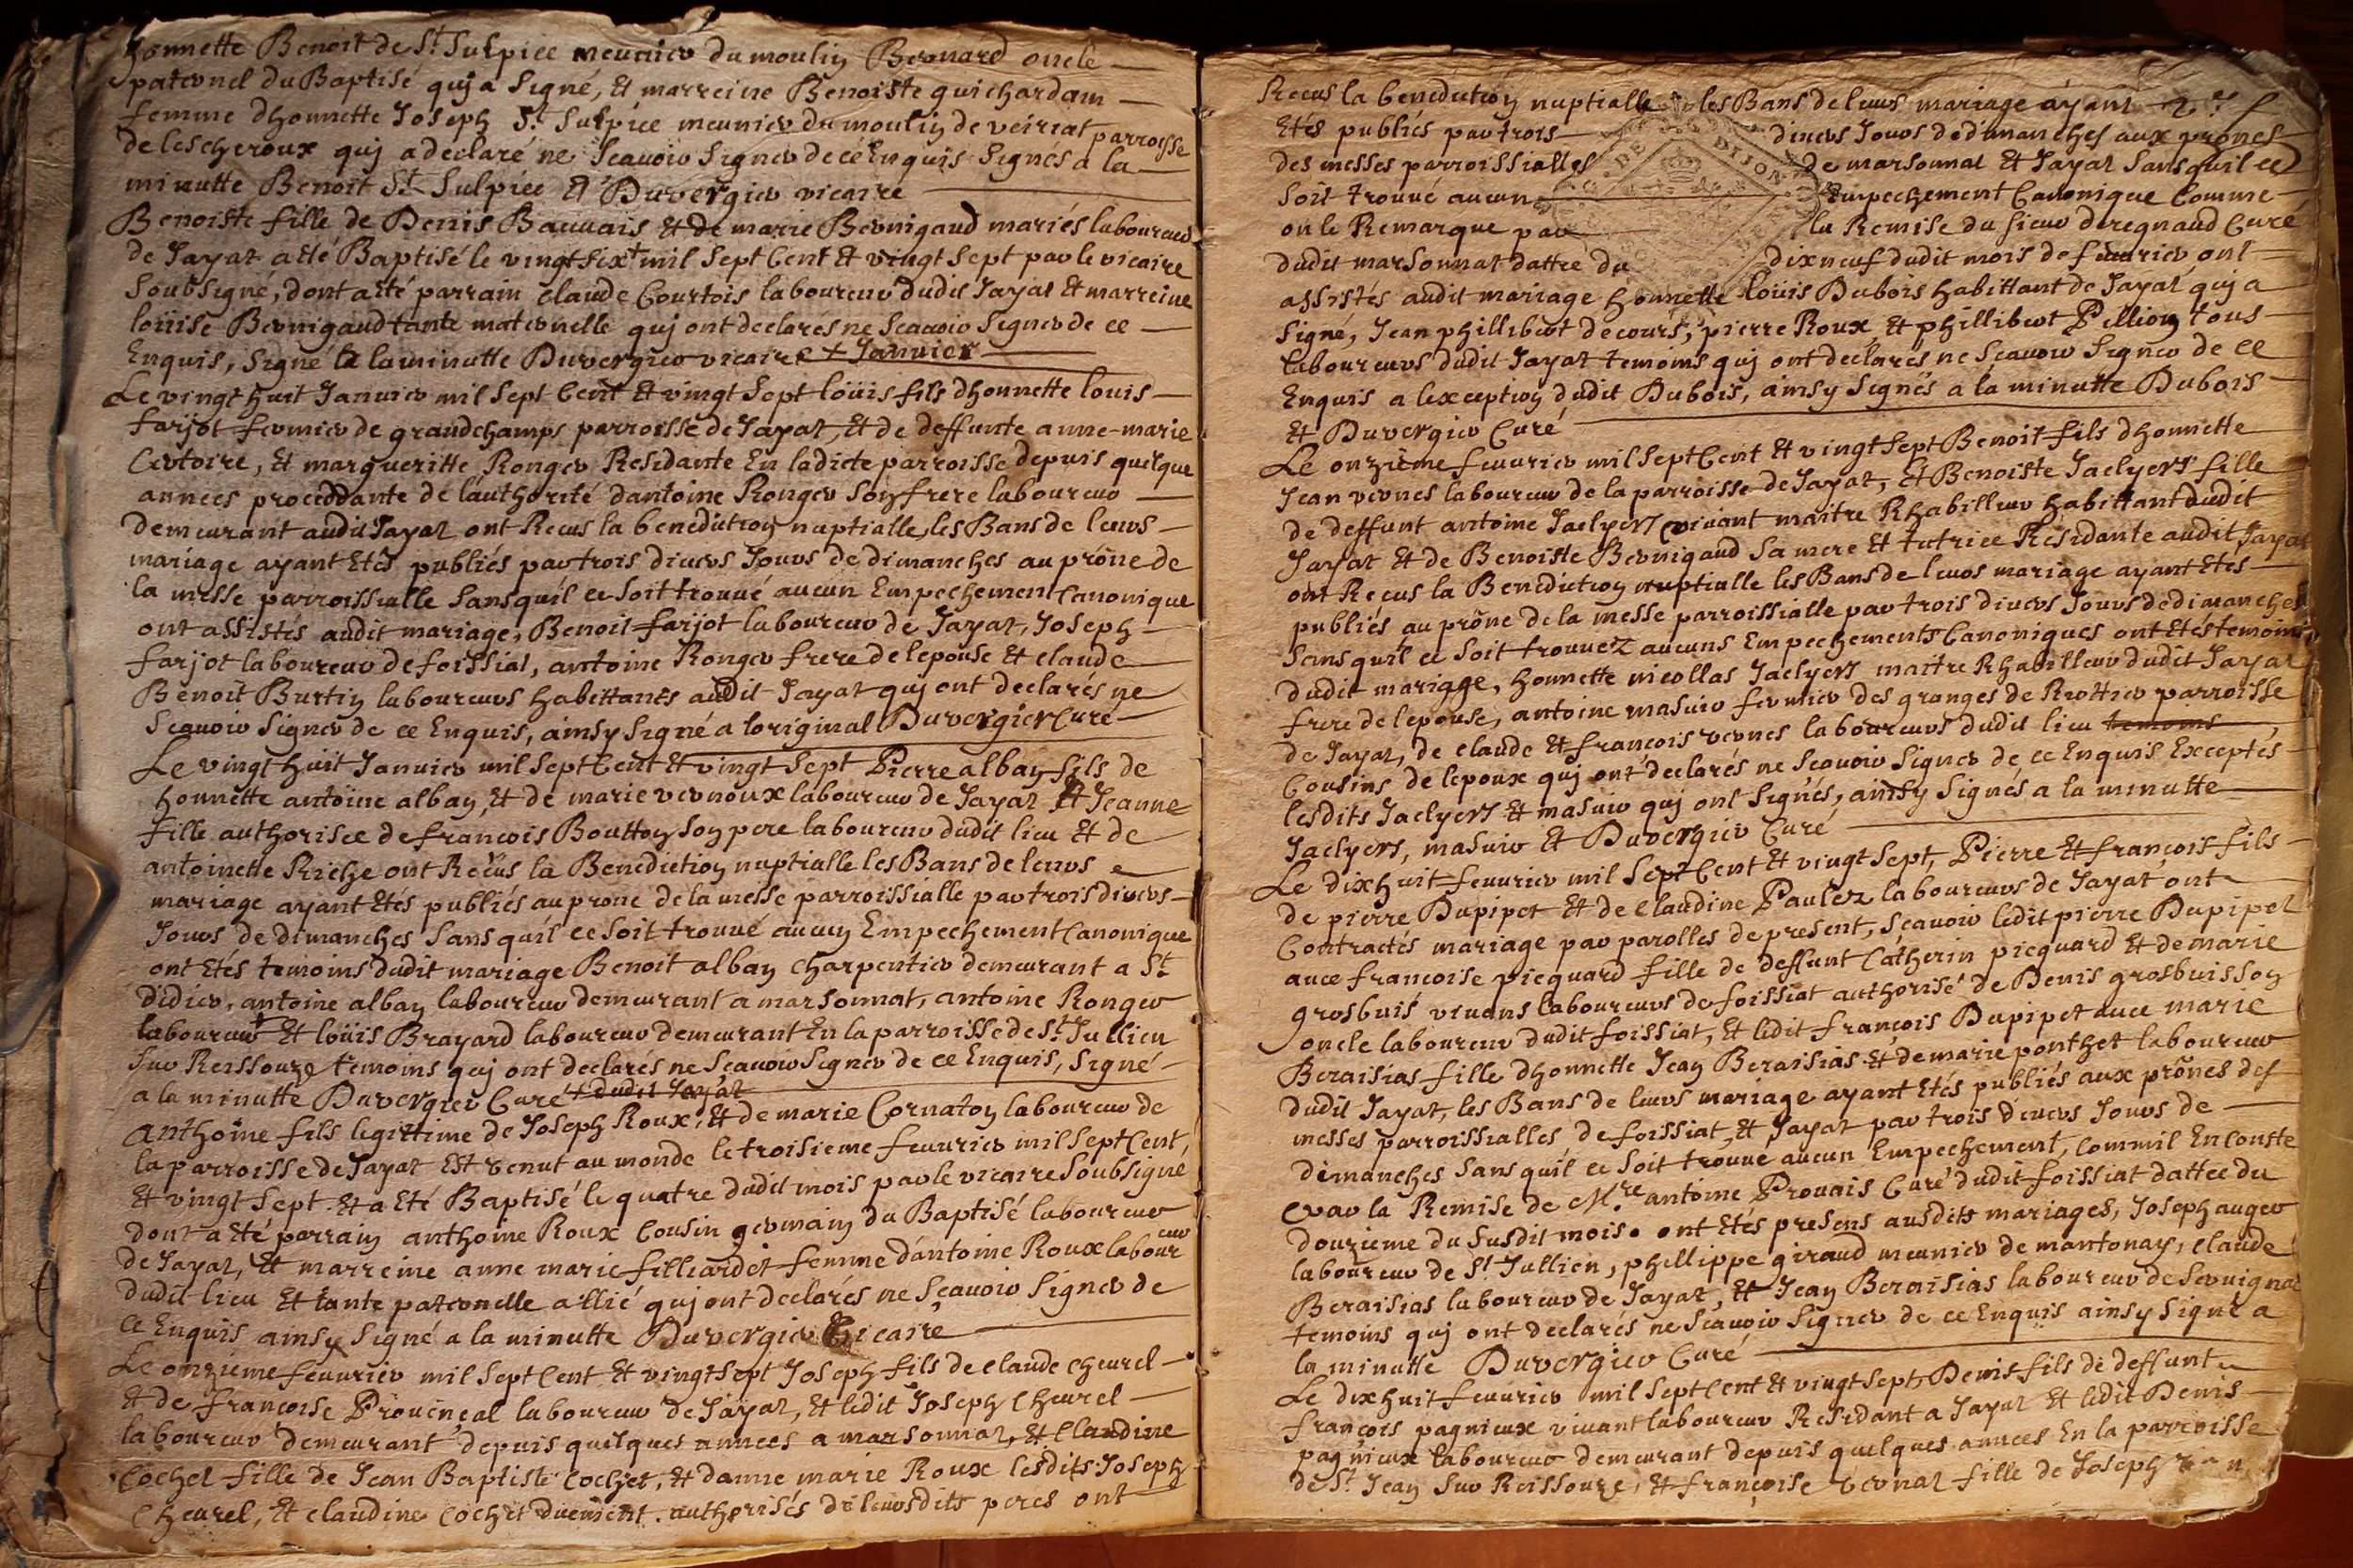 honnette Benoit de St Sulpice meunier du moulin Bernard oncle
paternel du Baptisé quj a signé, Et marreine Benoiste guichardam
femme dhonnette Joseph St Sulpice meunier du moulin de veiriat parroisse
de lescheroux quj a declaré ne scauoir signer de ce Enquis signés a la
minutte Benoit St Sulpice Et Duvergier vicaire
Benoiste fille de Denis Bauvais Et de marie Bernigaud mariés laboureurs
de Jayat a été Baptisé le vingt six+ mil sept Cent Et vingt sept par le vicaire
soubsigné, dont a été parrain claude Courtois laboureur dudit Jayat Et marreine
loüise Bernigaud tante maternelle quj ont declarés ne scauoir signer de ce
Enquis, signé a la minutte Duvergier vicaire + Januier
Le vingt huit Januier mil sept Cent Et vingt sept loüis fils dhonnette louis
farjot fermier de grandchamps parroisse de Jayat, Et de deffunte anne-marie
Certoire, Et margueritte Ronger Residante En ladicte parroisse depuis quelque
annees proceddante de lauthorité dantoine Ronger son frere laboureur
demeurant audit Jayat ont Recus la benediction nuptialle, les Bans de leurs
mariage ayant Etés publiés par trois diuers Jours de dimanches au prône de
la messe parroissialle sans quil ce soit trouué aucun Empechement Canonique
ont assistés audit mariage, Benoit farjot laboureur de Jayat, Joseph
farjot laboureur de foissiat, antoine Ronger frere de lepouse Et claude
Benoit Burtin laboureurs habittants audit Jayat quj ont declarés ne
scauoir signer de ce Enquis, ainsy signé a loriginal Duvergier Curé
Le vingt huit Januier mil sept Cent Et vingt sept Pierre alban fils de
honnette antoine alban, Et de marie vernoux laboureur de Jayat Et Jeanne
fille authorisée de francois Boutton son pere laboureur dudit lieu Et de
antoinette Riche ont Recus la Benediction nuptialle les Bans de leurs
mariage ayant Etés publiés au prone de la messe parroissialle par trois diuers
Jours de dimanches sans quil ce soit trouué aucun Empechement Canonique
ont Etés temoins dudit mariage Benoit alban charpentier demeurant a St
didier, antoine alban laboureur demeurant a marsonnat, antoine Ronger
laboureur+ Et loüis Brayard laboureur demeurant En la parroisse de St Jullien
sur Reissouze temoins quj ont declarés ne scauoir signer de ce Enquis, signé
a la minutte Duvergier Curé + dudit Jayat
anthoine fils legittime de Joseph Roux, Et de marie Cornaton laboureur de
la parroisse de Jayat Est venut au monde le troisieme feurier mil sept Cent,
Et vingt sept Et a Eté Baptisé le quatre dudit mois par le vicaire soubsigné
dont a été parrain anthoine Roux Cousin germain du Baptisé laboureur
de Jayat, Et marreine anne marie filliardet femme dantoine Roux laboureur
dudit lieu Et tante paternelle allié quj ont declarés ne scauoir signer de
ce Enquis ainsy signé a la minutte Duvergier vicaire
Le onzieme feurier mil sept Cent Et vingt sept Joseph fils de claude cheurel
Et de francoise Prouençal laboureur de Jayat, Et ledit Joseph Cheurel
laboureur demeurant depuis quelques annees a marsonnat, Et Claudine
Cochet fille de Jean Baptiste Cochet, Et danne marie Roux lesdits Joseph
Cheurel, Et claudine Cochet duement authorisés de leursdits peres ont
Recus la benediction nuptialle les Bans de leurs mariage ayant
Etés publiés par trois diuers Jours de dimanches aux prones
des messes parroissialles de marsonnat Et Jayat sans quil ce
soit trouué aucun Empechement Canonique Comme
on le Remarque par la Remise du sieur deregnaud Curé
dudit marsonnat dattée du dixneuf dudit mois de feurier, ont
assistés audit mariage honnette loüis Dubois habittant de Jayat quj a
signé, Jean phillibert decours, pierre Roux, Et phillibert Pillion tous
laboureurs dudit Jayat temoins quj ont declarés ne scauoir signer de ce
Enquis a lexception dudit Dubois, ainsy signés a la minutte Dubois
Et Duvergier Curé
Le onzieme feurier mil sept Cent Et vingt sept Benoit fils dhonnette
Jean vernes laboureur de la parroisse de Jayat, Et Benoiste Jaclyers fille
de deffunt antoine Jaclyers viuant maitre Rhabilleur habittant dudit
Jayat Et de Benoiste Bernigaud sa mere Et tutrice Residante audit Jayat
ont Recus la Benediction nuptialle les Bans de leurs mariage ayant Etés
publiés au prône de la messe parroissialle par trois diuers Jours de dimanches
sans quil ce soit trouuez aucuns Empechements Canoniques ont Etés temoins
dudit mariage, honnette nicollas Jaclyers maitre Rhabilleur dudit Jayat
frere de lepouse, antoine masuir fermier des granges de Rottier parroisse
de Jayat, de claude Et francois vernes laboureurs dudit lieu temoins
Cousins de lepoux quj ont declarés ne scauoir signer de ce Enquis Exceptés
lesdits Jaclyers Et masuir quj ont signés, ainsy signés a la minutte
Jaclyers, masuir Et Duvergier Curé
Le dixhuit feurier mil sept Cent Et vingt sept, Pierre Et francois fils
de pierre Dupipet Et de Claudine Paulez laboureurs de Jayat ont
Contractés mariage par parolles de present, scauoir ledit pierre Dupipet
auec francoise picquard fille de deffunt Catherin picquard Et de marie
grosbuis viuans laboureurs de foissiat authorisé de Denis grosbuisson
oncle laboureur dudit foissiat, Et ledit françois Dupipet auec marie
Beraisias fille dhonnette Jean Beraisias Et de marie ponthet laboureur
dudit Jayat, les Bans de leurs mariage ayant Etés publiés aux prônes des
messes parroissialles de foissiat, Et Jayat par trois diuers Jours de
dimanches sans quil ce soit trouue aucun Empechement, Comm il En Conste
par la Remise de Mre antoine Prouais Curé dudit foissiat dattee du
douzieme du susdit mois. ont Etés presens ausdits mariages, Joseph auger
laboureur de St Jullien, phillippe giraud meunier de mantonay, claude
Beraisias laboureur de Jayat, Et Jean Beraisias laboureur de seruignat
temoins quj ont declarés ne scauoir signer de ce Enquis ainsy signé a
la minutte Duvergier Curé
Le dixhuit feurier mil sept Cent Et vingt sept, Denis fils de deffunt
françois pagnieux viuant laboureur Residant a Jayat Et ledit Denis
pagnieux laboureur demeurant depuis quelques annees En la parroisse
de St Jean sur Reissouze, Et françoise vernat fille de Joseph